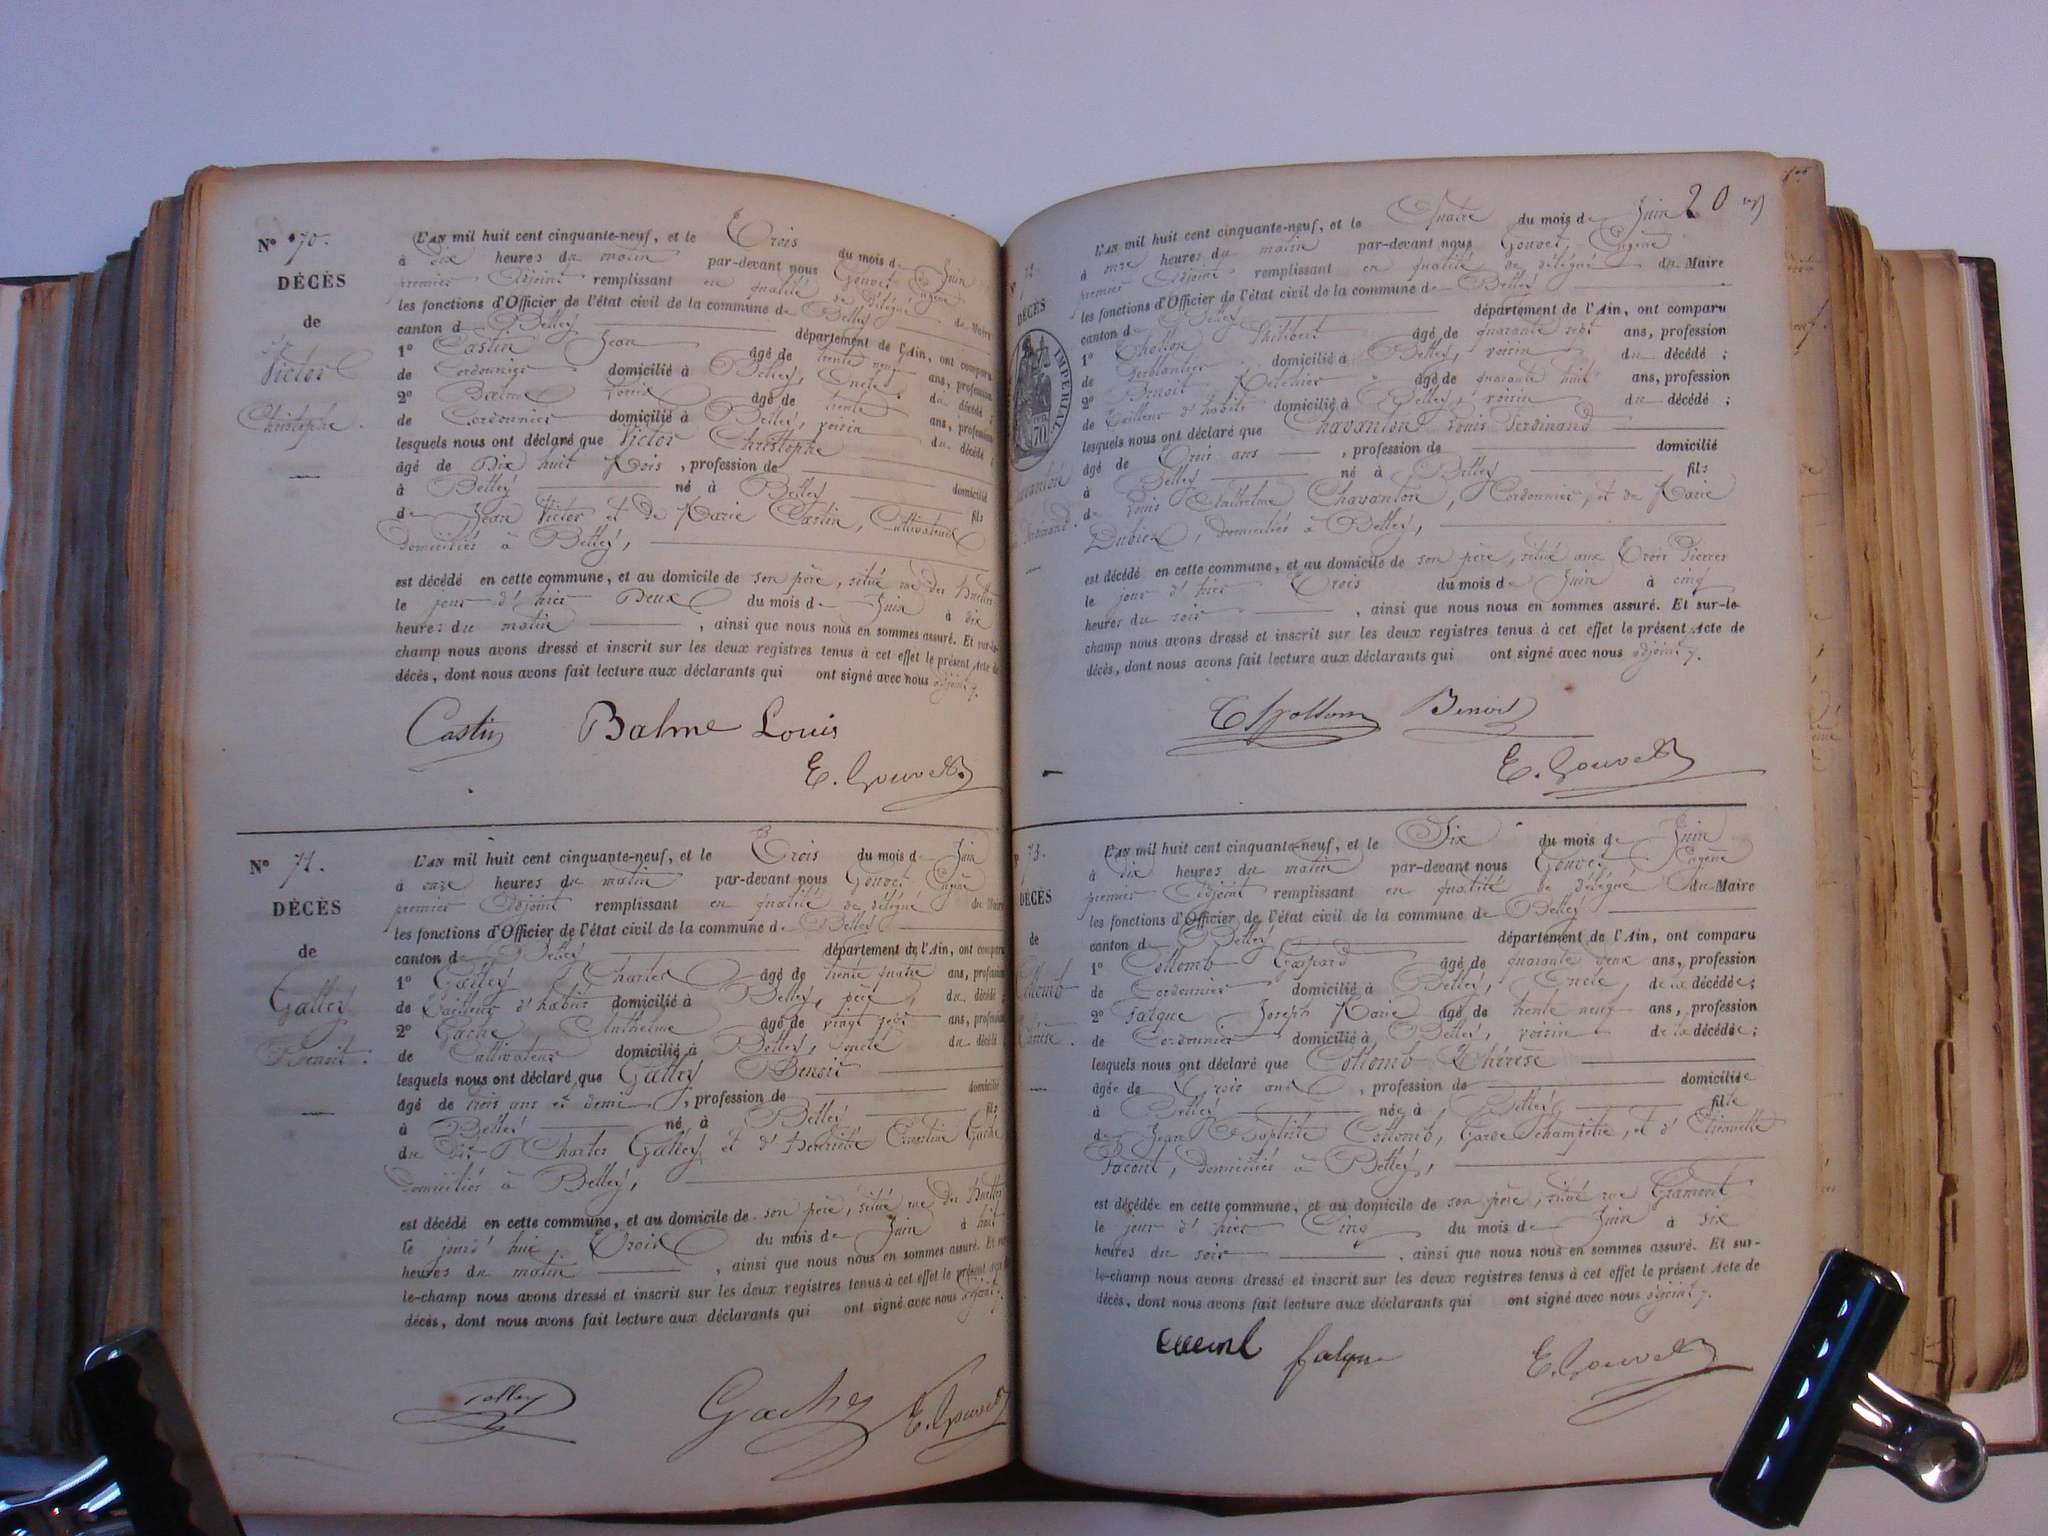 Nº 70.
DÉCÈS
de
Victor
Christophe.
L'AN mil huit cent cinquante-neuf, et le Trois du mois de Juin
à dix heures du matin par-devant nous Gouvet Eugène
premier Adjoint remplissant en qualité de délégué du Maire
les fonctions d'Officier de l'état civil de la commune de Belley
canton de Belley département de l'Ain, ont comparu
1º Castin Jean âgé de trente neuf ans, profession
de Cordonnier domicilié à Belley, Oncle du décédé ;
2º Balme Louis âgé de trente ans, profession
de Cordonnier domicilié à Belley, voisin du décédé ;
lesquels nous ont déclaré que Victor Christophe
âgé de Dix huit Mois, profession de domicilié
à Belley né à Belley fils
de Jean Victor et de Marie Castin, Cultivateurs
domiciliés à Belley,
est décédé en cette commune, et au domicile de son père, situé rue des
le jour d'hier Deux du mois de Juin à dix
heures du matin, ainsi que nous nous en sommes assuré. Et sur-le-
champ nous avons dressé et inscrit sur les deux registres tenus à cet effet le présent Acte de
décès, dont nous avons fait lecture aux déclarants qui ont signé avec nous adjoint
Castin Balme Louis
E. Gouvet
Nº 71.
DÉCÈS
de
Galley
Benoit.
L'AN mil huit cent cinquante-neuf, et le Trois du mois de Juin
à onze heures du matin par-devant nous Gouvet Eugène
premier Adjoint remplissant en qualité de délégué du Maire
les fonctions d'Officier de l'état civil de la commune de Belley
canton de Belley département de l'Ain, ont comparu
1º Galley Charles âgé de trente quatre ans, profession
de Tailleur d'habits domicilié à Belley, père, du décédé ;
2º Gache Anthelme âgé de vingt ans, profession
de Cultivateur domicilié à Belley, oncle du décédé
lesquels nous ont déclaré que Galley Benoit
âgé de trois ans et demi, profession de domicilié
à Belley né à Belley fils
du dit Charles Galley et d'Henriette Ernestine Gache
domiciliés à Belley,
est décédé en cette commune, et au domicile de son père, situé rue des
le jourd'hui Trois du mois de Juin à huit
heures du matin, ainsi que nous nous en sommes assuré. Et sur-
le-champ nous avons dressé et inscrit sur les deux registres tenus à cet effet le présent Acte de
décès, dont nous avons fait lecture aux déclarants qui ont signé avec nous adjoint
Galley Gache E. Gouvet
20
DÉCÈS
IMPÉRIAL
70
L'AN mil huit cent cinquante-neuf, et le Quatre du mois de Juin
à onze heures du matin par-devant nous Gouvet, Eugène
premier Adjoint remplissant en qualité de délégué du Maire
les fonctions d'Officier de l'état civil de la commune de Belley
canton de Belley département de l'Ain, ont comparu
1º Chollon Philibert âgé de quarante sept ans, profession
de Ferblantier domicilié à Belley, voisin du décédé ;
2º Benoit Melchior âgé de quarante huit ans, profession
de Tailleur d'habits domicilié à Belley, voisin du décédé ;
lesquels nous ont déclaré que Chavanton Louis Ferdinand
âgé de Trois ans, profession de domicilié
à Belley né à Belley fils
de Louis Anthelme Chavanton, Cordonnier, et de Marie
Dubiel, domiciliés à Belley,
est décédé en cette commune, et au domicile de son père, situé aux Trois Pierres
le jour d'hier Trois du mois de Juin à cinq
heures du soir, ainsi que nous nous en sommes assuré. Et sur-le-
champ nous avons dressé et inscrit sur les deux registres tenus à cet effet le présent Acte de
décès, dont nous avons fait lecture aux déclarants qui ont signé avec nous adjoint
Chollon Benoit
E. Gouvet
73.
DÉCÈS
de
L'AN mil huit cent cinquante-neuf, et le Six du mois de Juin
à dix heures du matin par-devant nous Gouvet Eugène
premier Adjoint remplissant en qualité de délégué du Maire
les fonctions d'Officier de l'état civil de la commune de Belley
canton de Belley département de l'Ain, ont comparu
1º Collomb Gaspard âgé de quarante deux ans, profession
de Cordonnier domicilié à Belley, Oncle, de la décédée ;
2º Falque Joseph Marie âgé de trente neuf ans, profession
de Cordonnier domicilié à Belley, voisin de la décédée ;
lesquels nous ont déclaré que Collomb Thérèse
âgée de Trois ans, profession de domiciliée
à Belley née à Belley fille
de Jean Baptiste Collomb, Garde champêtre, et d'Etiennette
domiciliés à Belley,
est décédée en cette commune, et au domicile de son père, situé rue Gramont
le jour d'hier Cinq du mois de Juin à six
heures du soir, ainsi que nous nous en sommes assuré. Et sur-
le-champ nous avons dressé et inscrit sur les deux registres tenus à cet effet le présent Acte de
décès, dont nous avons fait lecture aux déclarants qui ont signé avec nous adjoint
falque E. Gouvet